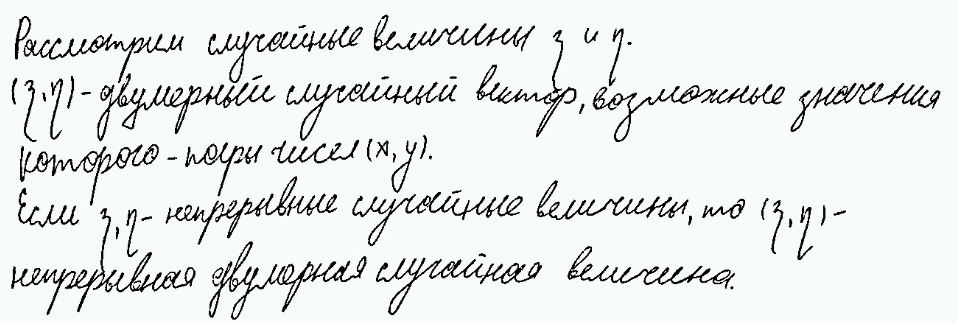 Рассмотрим случайные величины ξ и η.
(ξ,η)-двумерный случайный вектор, возможные значения
которого-пары чисел (x,y).
Если ξ,η-непрерывные случайные величины, то (ξ,η)-
непрерывная двумерная случайная величина.